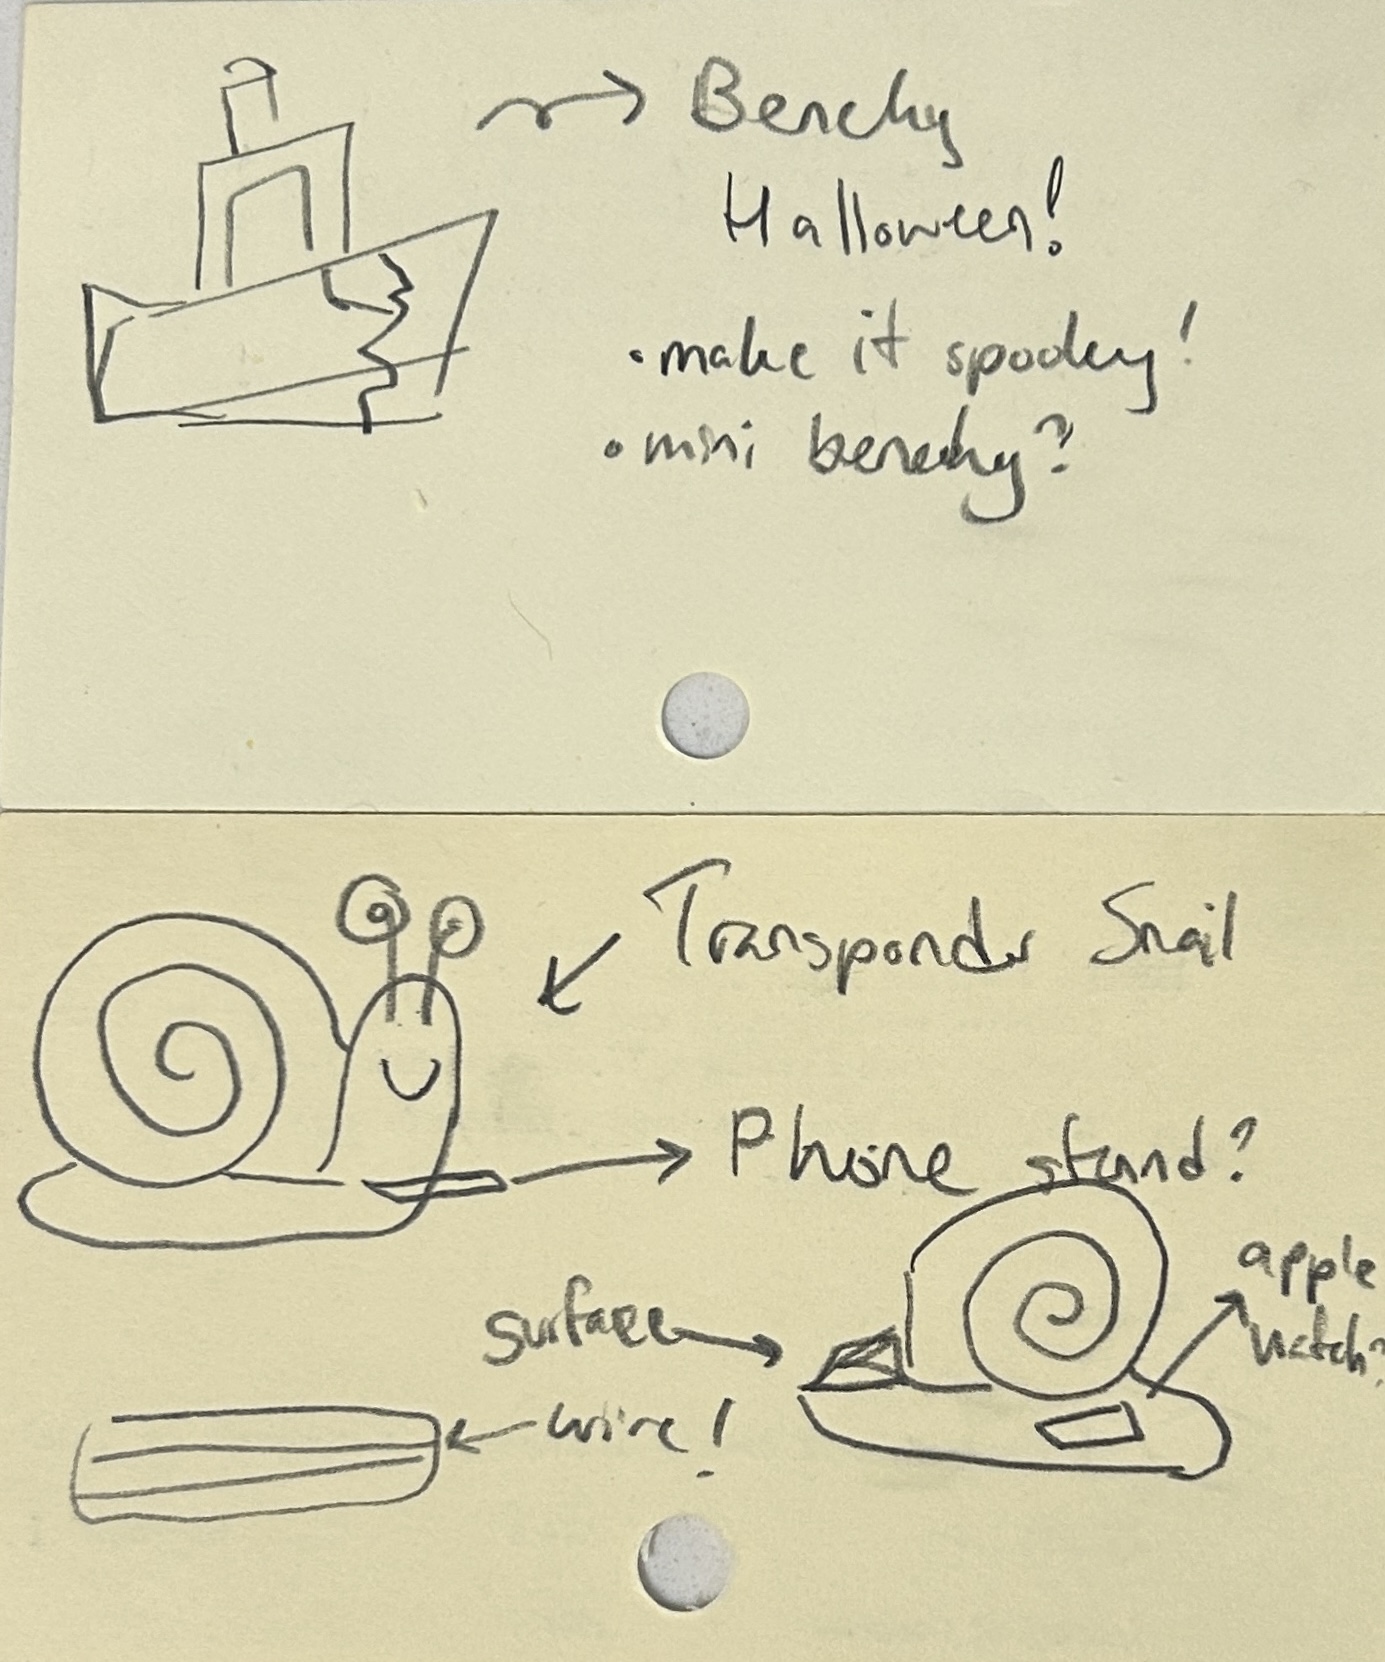 Benchy
Halloween!
• make it spooky!
• mini benchy?
Transponder Snail
Phone stand?
apple
watch?
surface
wire!